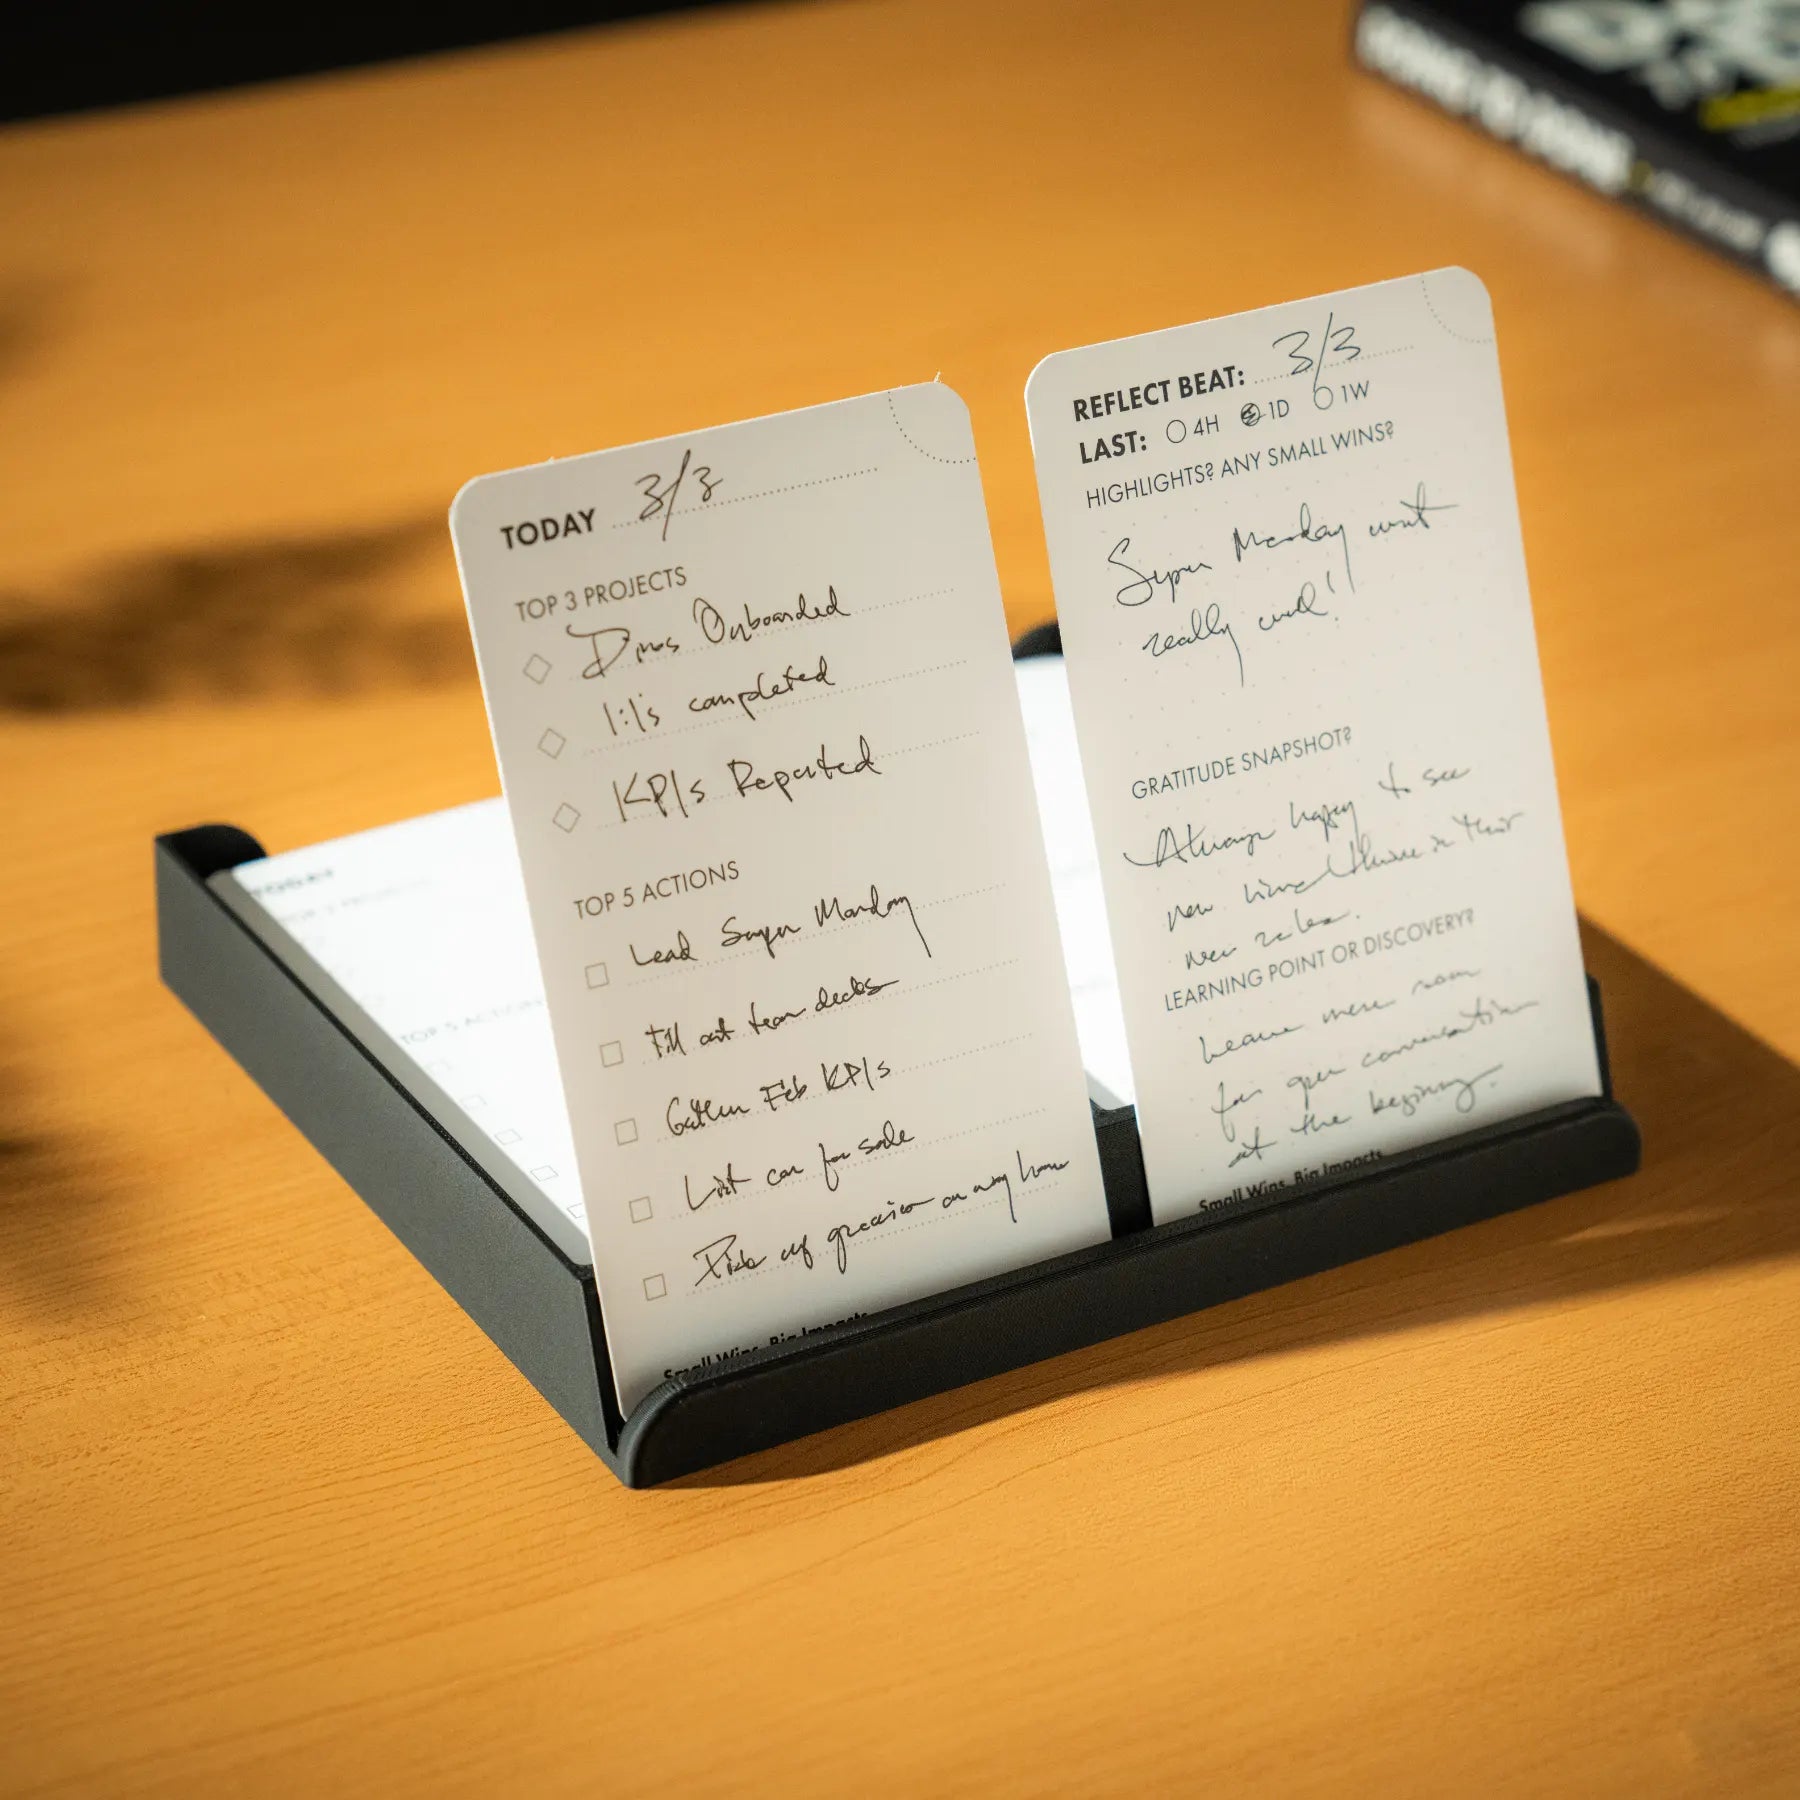 TODAY 3/3
TOP 3 PROJECTS
Onboarded
1:1's completed
KPI's Reported
TOP 5 ACTIONS
Lead Super Monday
Fill out team decks
Gather Feb KPI's
List car for sale
Pick up groceries on way home
Small Wins, Big Impacts
REFLECT BEAT: 3/3
LAST: 4H 1D 1W
HIGHLIGHTS? ANY SMALL WINS?
Super Monday went
really well!
GRATITUDE SNAPSHOT?
Always happy to see
new hires thrive in their
new roles.
LEARNING POINT OR DISCOVERY?
Leave more room
for open conversation
at the beginning.
Small Wins, Big Impacts
TODAY
TOP 3 PROJECTS
TOP 5 ACTIONS